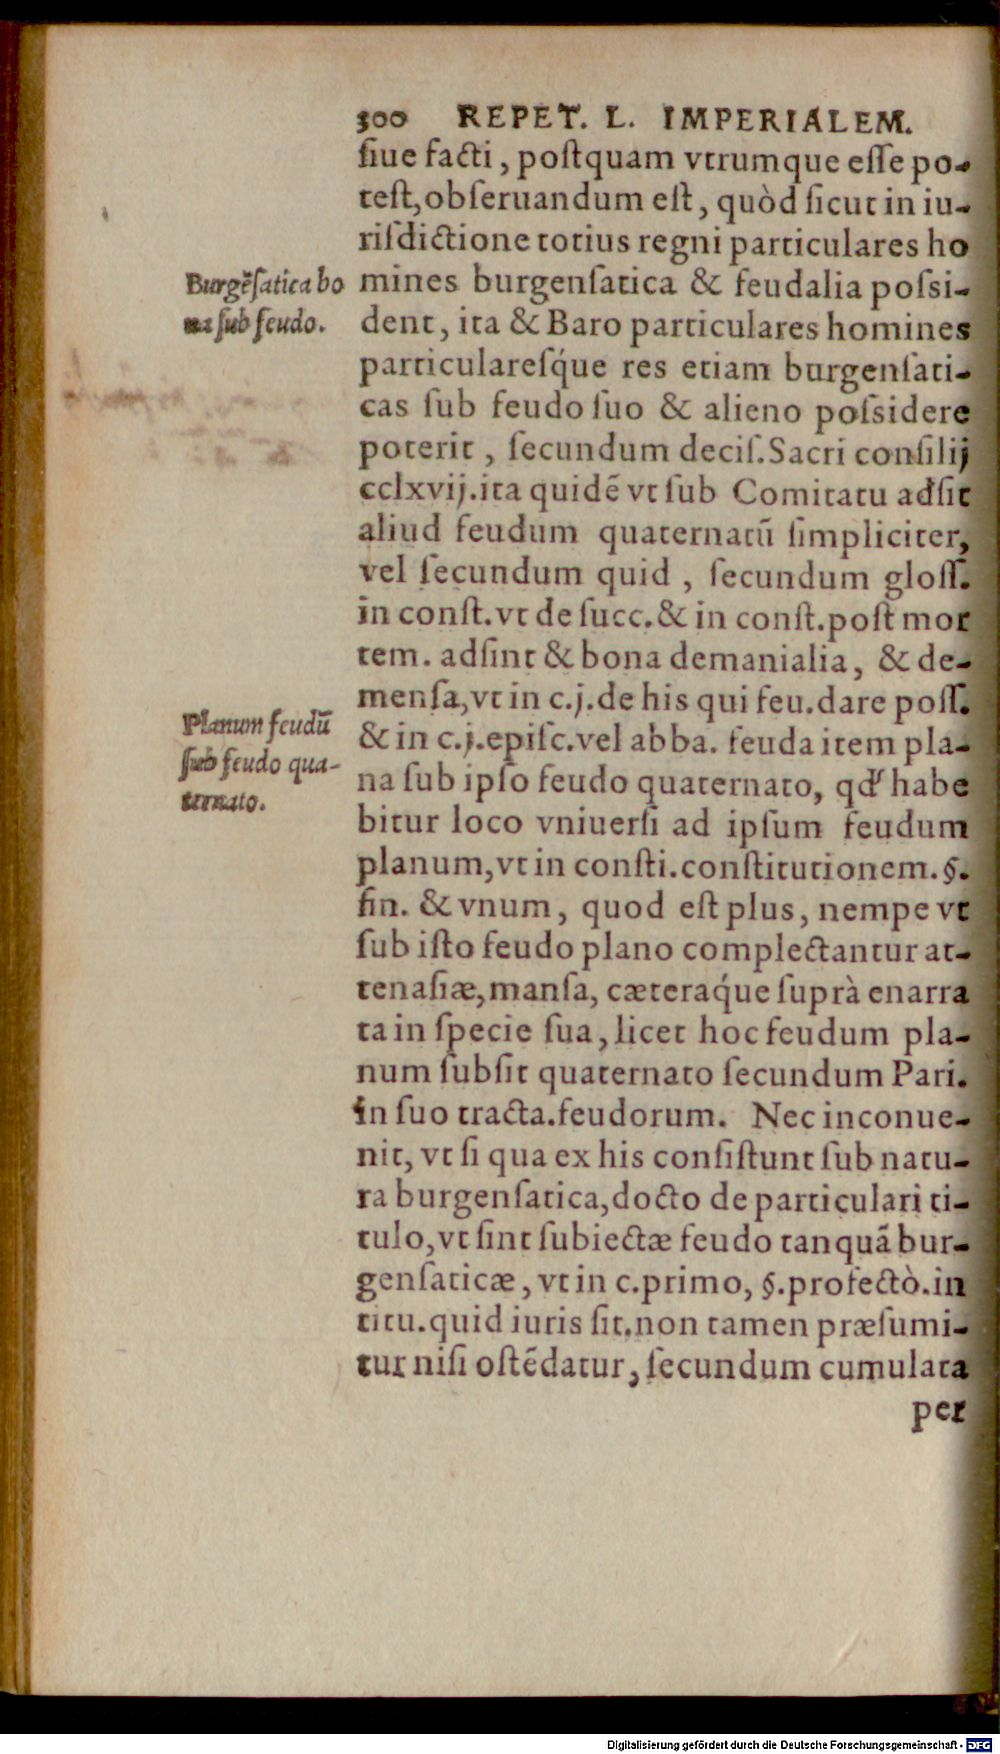 300 REPET. L. IMPERIALEM.
ſiue facti, poſtquam vtrumque eſſe po-
teſt, obſeruandum eſt, quòd ſicut in iu-
riſdictione totius regni particulares ho
Burgẽſatica bo
na ſub feudo.
mines burgenſatica & feudalia poſsi-
dent, ita & Baro particulares homines
particulareſq́ue res etiam burgenſati-
cas ſub feudo ſuo & alieno poſsidere
poterit, ſecundum deciſ. Sacri conſilij
cclxvij. ita quidẽ vt ſub Comitatu adſit
aliud feudum quaternatũ ſimpliciter,
vel ſecundum quid, ſecundum gloſſ.
in conſt. vt de ſucc. & in conſt. poſt mor
tem. adſint & bona demanialia, & de-
menſa, vt in c.j. de his qui feu. dare poſſ.
Planum feudũ
ſub feudo qua-
ternato.
& in c.j. epiſc. vel abba. feuda item pla-
na ſub ipſo feudo quaternato, qđ habe
bitur loco vniuerſi ad ipſum feudum
planum, vt in conſti. conſtitutionem. §.
fin. & vnum, quod eſt plus, nempe vt
ſub iſto feudo plano complectantur at-
tenaſiæ, manſa, cæteraq́ue ſuprà enarra
ta in ſpecie ſua, licet hoc feudum pla-
num ſubſit quaternato ſecundum Pari.
in ſuo tracta. feudorum. Nec inconue-
nit, vt ſi qua ex his conſiſtunt ſub natu-
ra burgenſatica, docto de particulari ti-
tulo, vt ſint ſubiectæ feudo tanquã bur-
genſaticæ, vt in c. primo, §. profectò. in
titu. quid iuris ſit. non tamen præſumi-
tur niſi oſtẽdatur, ſecundum cumulata
per
Digitalisierung gefördert durch die Deutsche Forschungsgemeinschaft - DFG